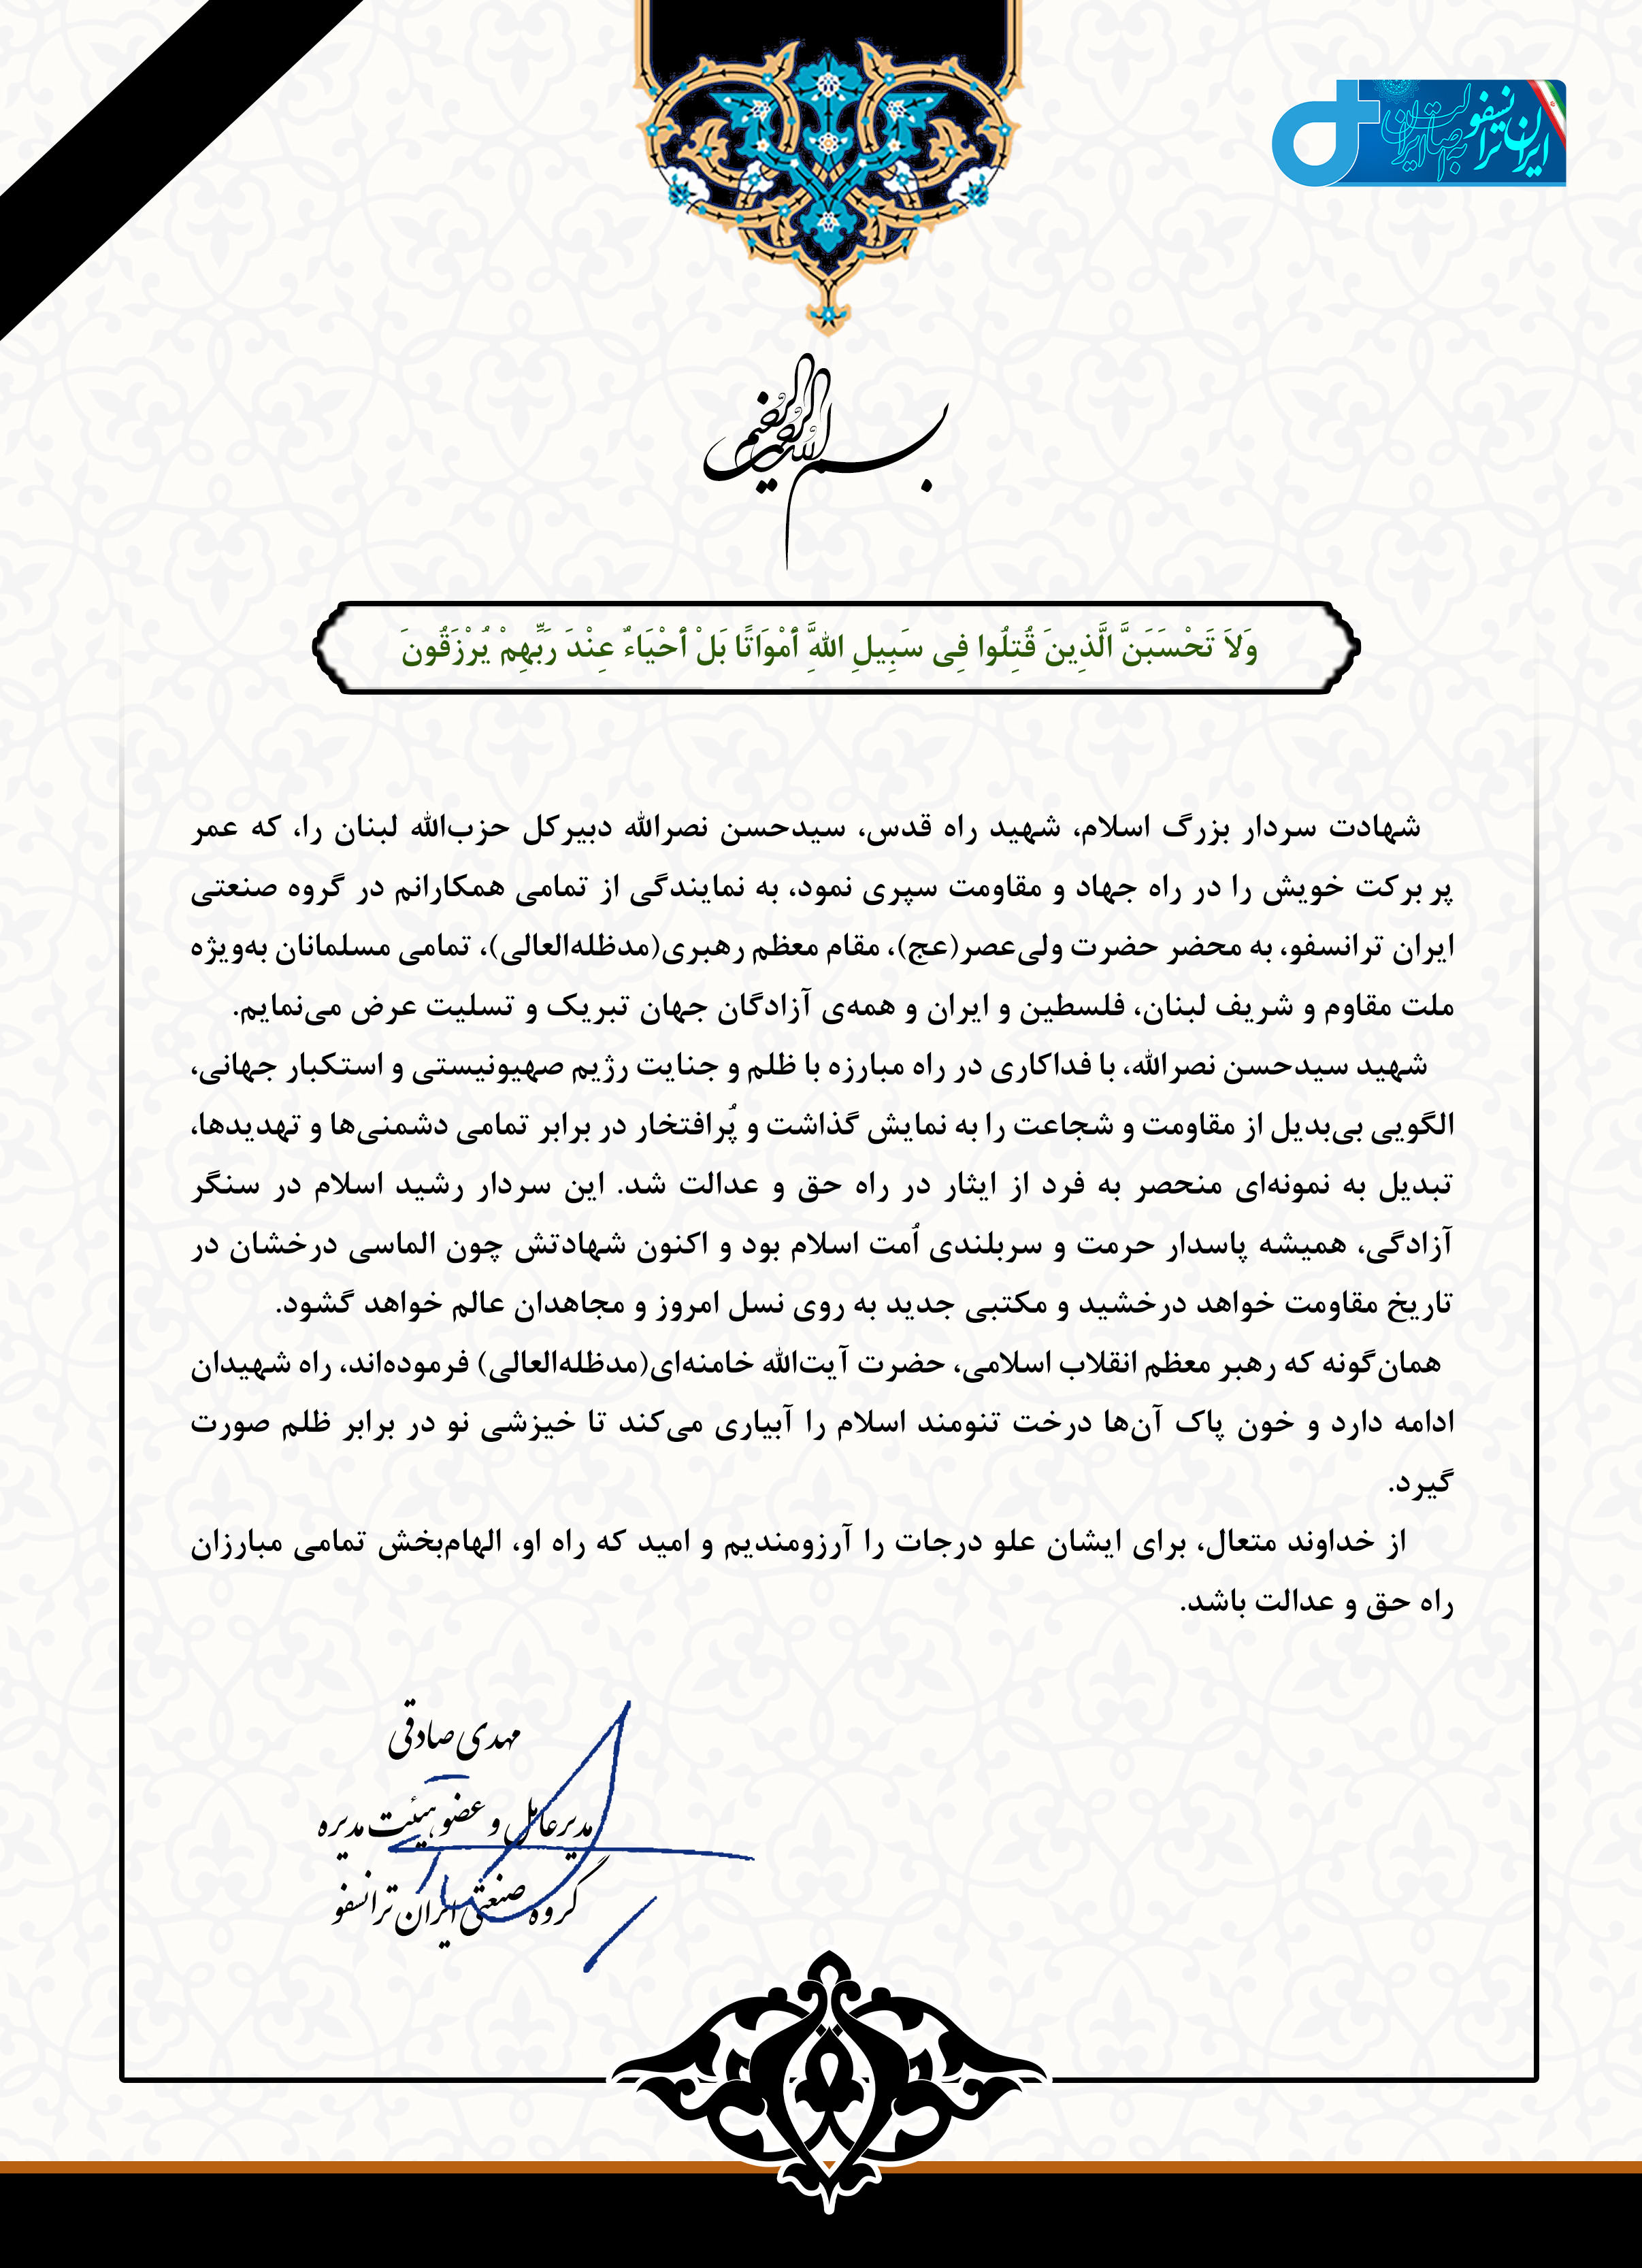 ایران ترانسفو
به اصالت ایران
بسم الله الرحمن الرحیم
وَلاَ تَحْسَبَنَّ الَّذِینَ قُتِلُوا فِی سَبِیلِ اللهَّ أَمْوَاتًا بَلْ أَحْیَاءٌ عِنْدَ رَبِّهِمْ یُرْزَقُونَ
شهادت سردار بزرگ اسلام، شهید راه قدس، سیدحسن نصرالله دبیرکل حزب‌الله لبنان را، که عمر
پر برکت خویش را در راه جهاد و مقاومت سپری نمود، به نمایندگی از تمامی همکارانم در گروه صنعتی
ایران ترانسفو، به محضر حضرت ولی‌عصر(عج)، مقام معظم رهبری(مدظله‌العالی)، تمامی مسلمانان به‌ویژه
ملت مقاوم و شریف لبنان، فلسطین و ایران و همه‌ی آزادگان جهان تبریک و تسلیت عرض می‌نمایم.
شهید سیدحسن نصرالله، با فداکاری در راه مبارزه با ظلم و جنایت رژیم صهیونیستی و استکبار جهانی،
الگویی بی‌بدیل از مقاومت و شجاعت را به نمایش گذاشت و پُرافتخار در برابر تمامی دشمنی‌ها و تهدیدها،
تبدیل به نمونه‌ای منحصر به فرد از ایثار در راه حق و عدالت شد. این سردار رشید اسلام در سنگر
آزادگی، همیشه پاسدار حرمت و سربلندی اُمت اسلام بود و اکنون شهادتش چون الماسی درخشان در
تاریخ مقاومت خواهد درخشید و مکتبی جدید به روی نسل امروز و مجاهدان عالم خواهد گشود.
همان‌گونه که رهبر معظم انقلاب اسلامی، حضرت آیت‌الله خامنه‌ای(مدظله‌العالی) فرموده‌اند، راه شهیدان
ادامه دارد و خون پاک آن‌ها درخت تنومند اسلام را آبیاری می‌کند تا خیزشی نو در برابر ظلم صورت
گیرد.
از خداوند متعال، برای ایشان علو درجات را آرزومندیم و امید که راه او، الهام‌بخش تمامی مبارزان
راه حق و عدالت باشد.
مهدی صادقی
مدیرعامل و عضو هیئت مدیره
گروه صنعتی ایران ترانسفو